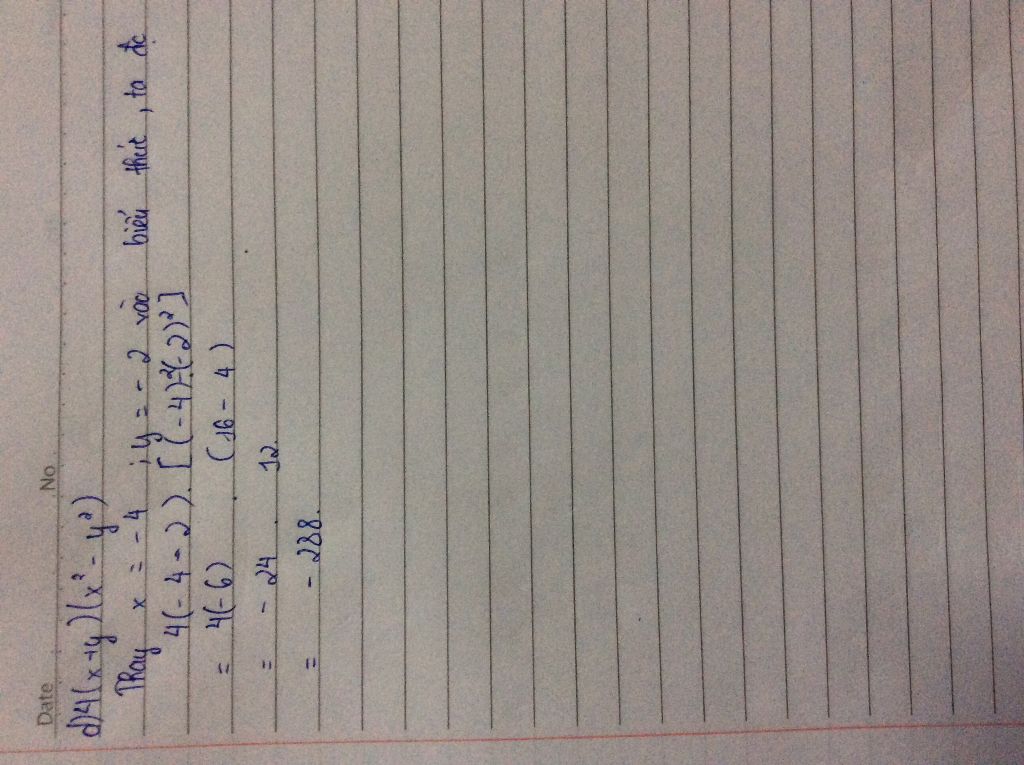 Date No
d) 4(x+y)(x² - y²)
Thay x = - 4 ; y = - 2 vào biểu thức , ta đc
4(- 4 - 2 ) . [ (- 4)²-(- 2)² ]
= 4(- 6) . (16 - 4 )
= - 24 . 12
= - 288.